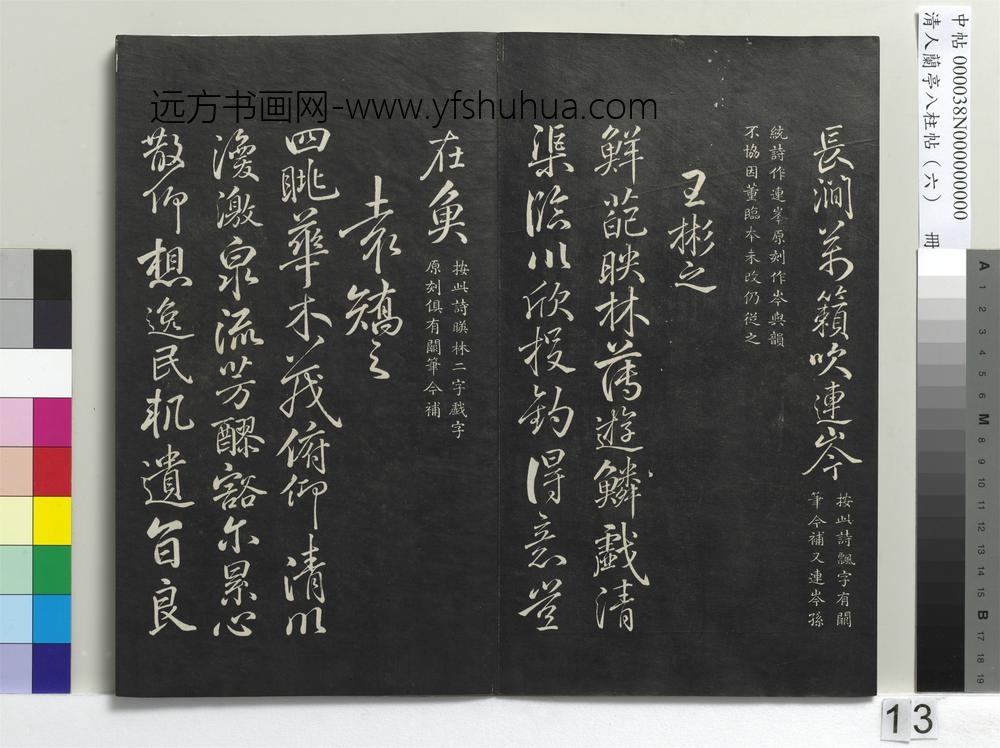 远方书画网-www.yfshuhua.com
中帖 000038N000000000
清人蘭亭八柱帖（六） 冊
長澗萬籟吹連岑
按此詩飄字有闕
筆今補又連岑孫
統詩作連峯原刻作岑與韻
不協因董臨本未改仍從之
王彬之
鮮葩暎林薄遊鱗戲清
渠臨川欣投釣得意豈
在魚
按此詩暎林二字戲字
原刻俱有闕筆今補
袁矯之
四眺華木茂俯仰清川
渙激泉流芳醪豁尓累心
散仰想逸民軌遺音良
A 1 2 3 4 5 6 M 8 9 10 11 12 13 14 15 B 17 18 19
13